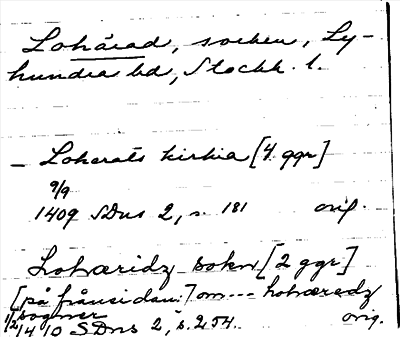 Lohärad, socken, Ly-
hundra hd, Stockh. l.
- Loherats kirkia [4 ggr]
9/9
1409 SDns 2, s. 181 orig.
Lohæridz sokn [2 ggr]
[på frånsidan:] om --- lohæredz
sogner
1/2 1410 SDns 2, s. 254. orig.